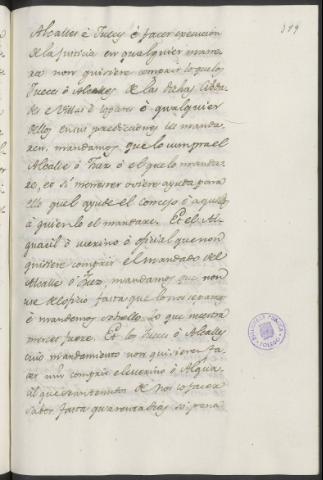 319
Alcalles è Jueces è facer execucion
de la Justicia en qualquier mane
ra: non quisiere complir lo que los
Jueces ò Alcalles de las dichas Cibda
des è Villas è logares ò qualquier
dellos en sus juredicciones les manda
ren, mandamos que lo cumpra el
Alcalle ò Juez ò el que lo manda
re, et si menester oviere ayuda para
ello quel ayude el Concejo ò aquel
à quien lo el mandare. Et el Al
guacil ò merino ò oficial que non
quisiere complir el mandado del
Alcalle ò Juez, mandamos que non
use del oficio fasta que lo nos sepamos
è mandemos sobrello, lo que nuestra
merced fuere. Et los Jueces ò Alcalles
cuio mandamiento non quisieren fa
cer nin complir el merino ò Algua
cil que sean tenudos de nos lo facer
saber fasta quarenta dias so pena
BIBLIOTECA PUBLICA
TOLEDO